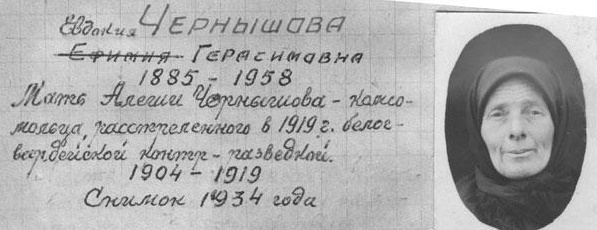 Евдокия ЧЕРНЫШОВА
Ефимия ГЕРАСИМОВНА
1885 - 1958
Мать Алеши Чернышова - комсо-
мольца, расстреленного в 1919 г. белог-
вардейской контр - разведкой.
1904 - 1919
Снимок 1934 года